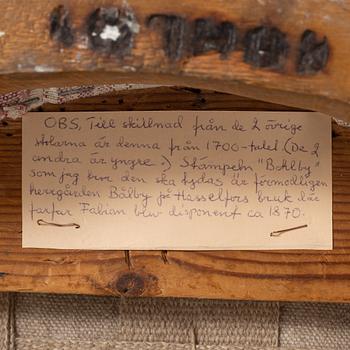 OBS, Till skillnad från de 2 övriga
stolarna är denna från 1700-talet (De 2
andra är yngre.) Stämpeln "Bohlby"
som jag tror den ska tydas är förmodligen
herregården Bålby på Hasselfors bruk där
farfar Fabian blev disponent ca 1870.